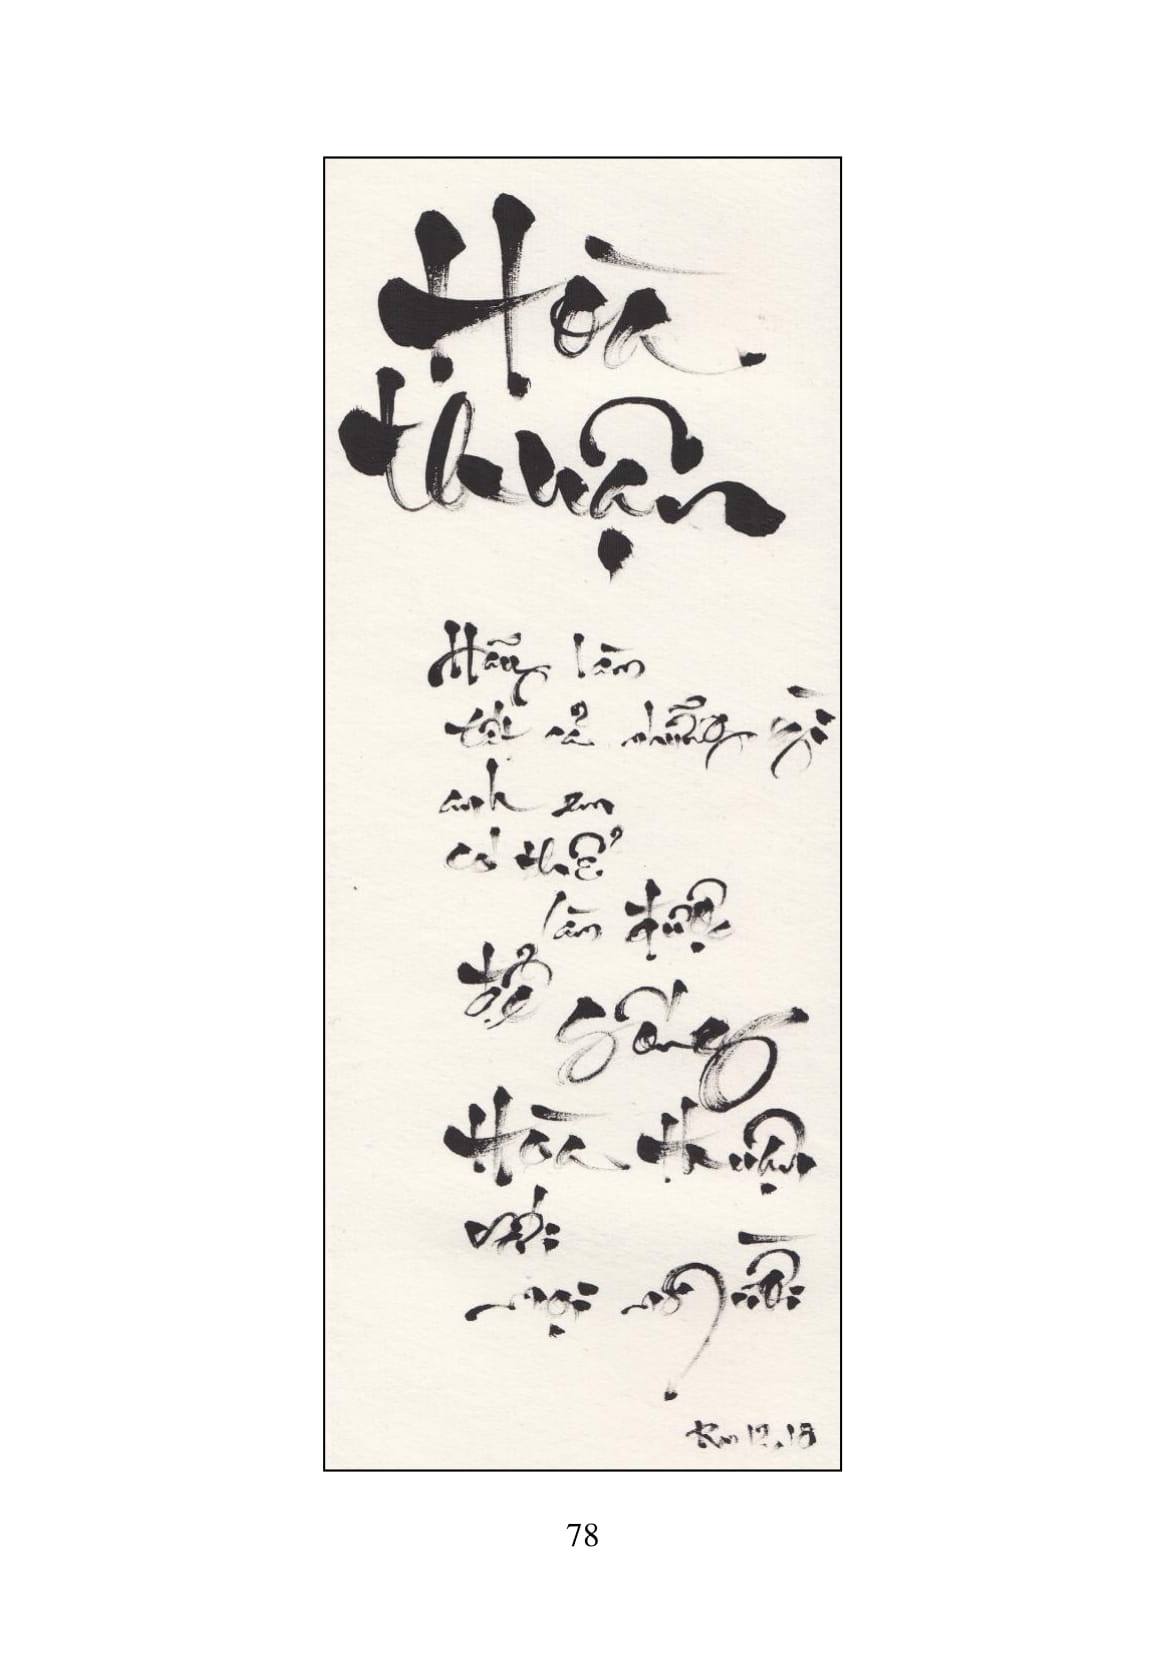 Hòa
thuận
Hãy làm
tất cả những gì
anh em
có thể
làm được
để
sống
Hòa thuận
với
mọi người
Rm 12,18
78